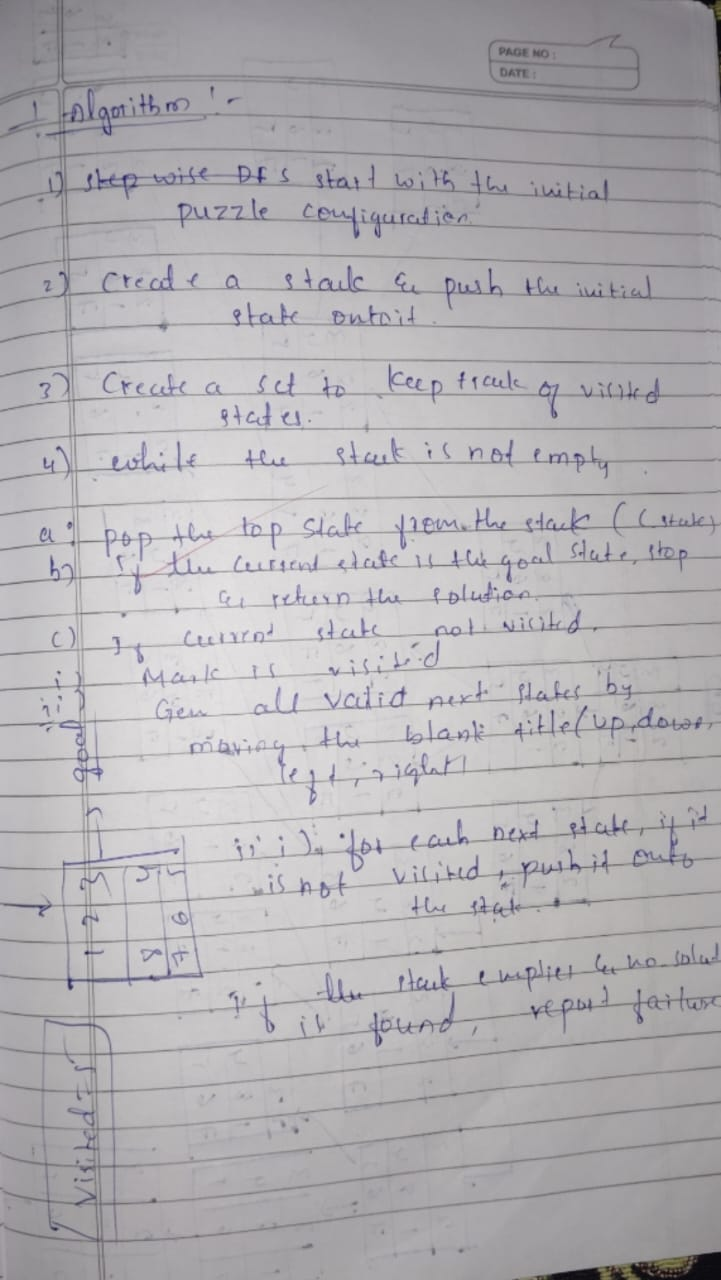 PAGE NO :
DATE :
1 Algorithm :-
1) step wise DFS start with the initial
puzzle configuration.
2) Create a stack & push the initial
state ontoit.
3) Create a set to keep track of visited
states.
4) while the stack is not empty
a: pop the top state from the stack ( C state)
b) If the current state is the goal state, stop
& return the solution.
c) If current state not visited.
i Mark is visited
ii Gen all valid next states by
moving the blank title(up, down,
left, right)
iii) for each next state, if it
is not visited, push it onto
the stak.
If the stack empties & no solut
is found, report failure
goal
1 2 3
8
5
7 6 5
Visited = 5